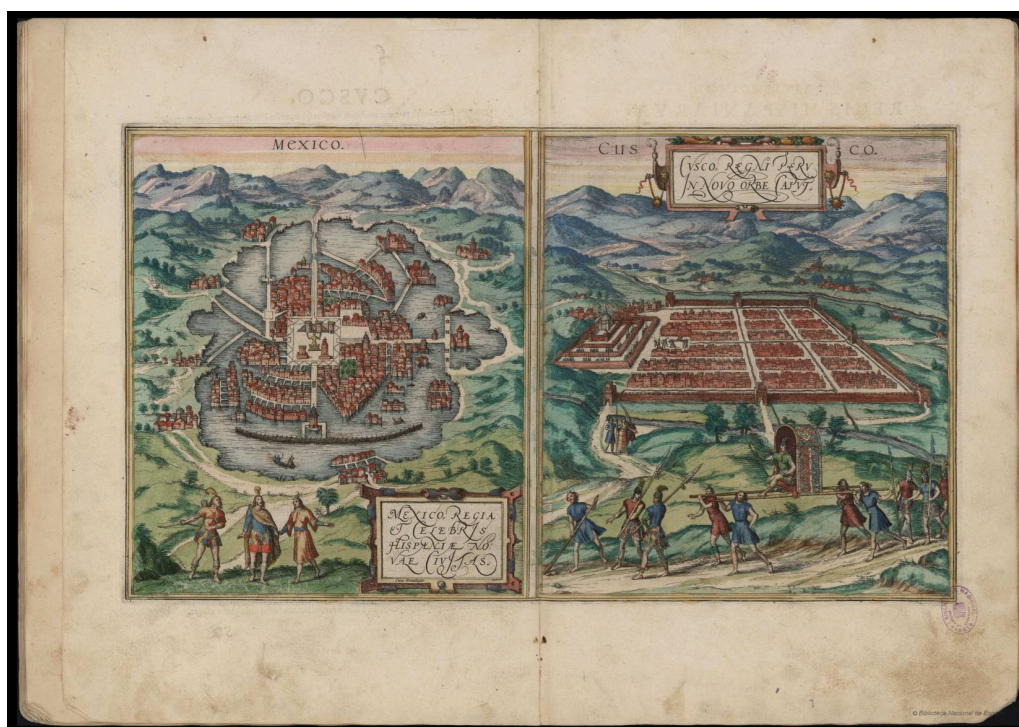 MEXICO.
CUSCO.
CVSCO, REGNI PERV
IN NOVO ORBE CAPVT.
MEXICO, REGIA
ET CELEBRIS
HISPANIÆ NO-
VAE CIVITAS.
Cum Privilegio
© Biblioteca Nacional de España